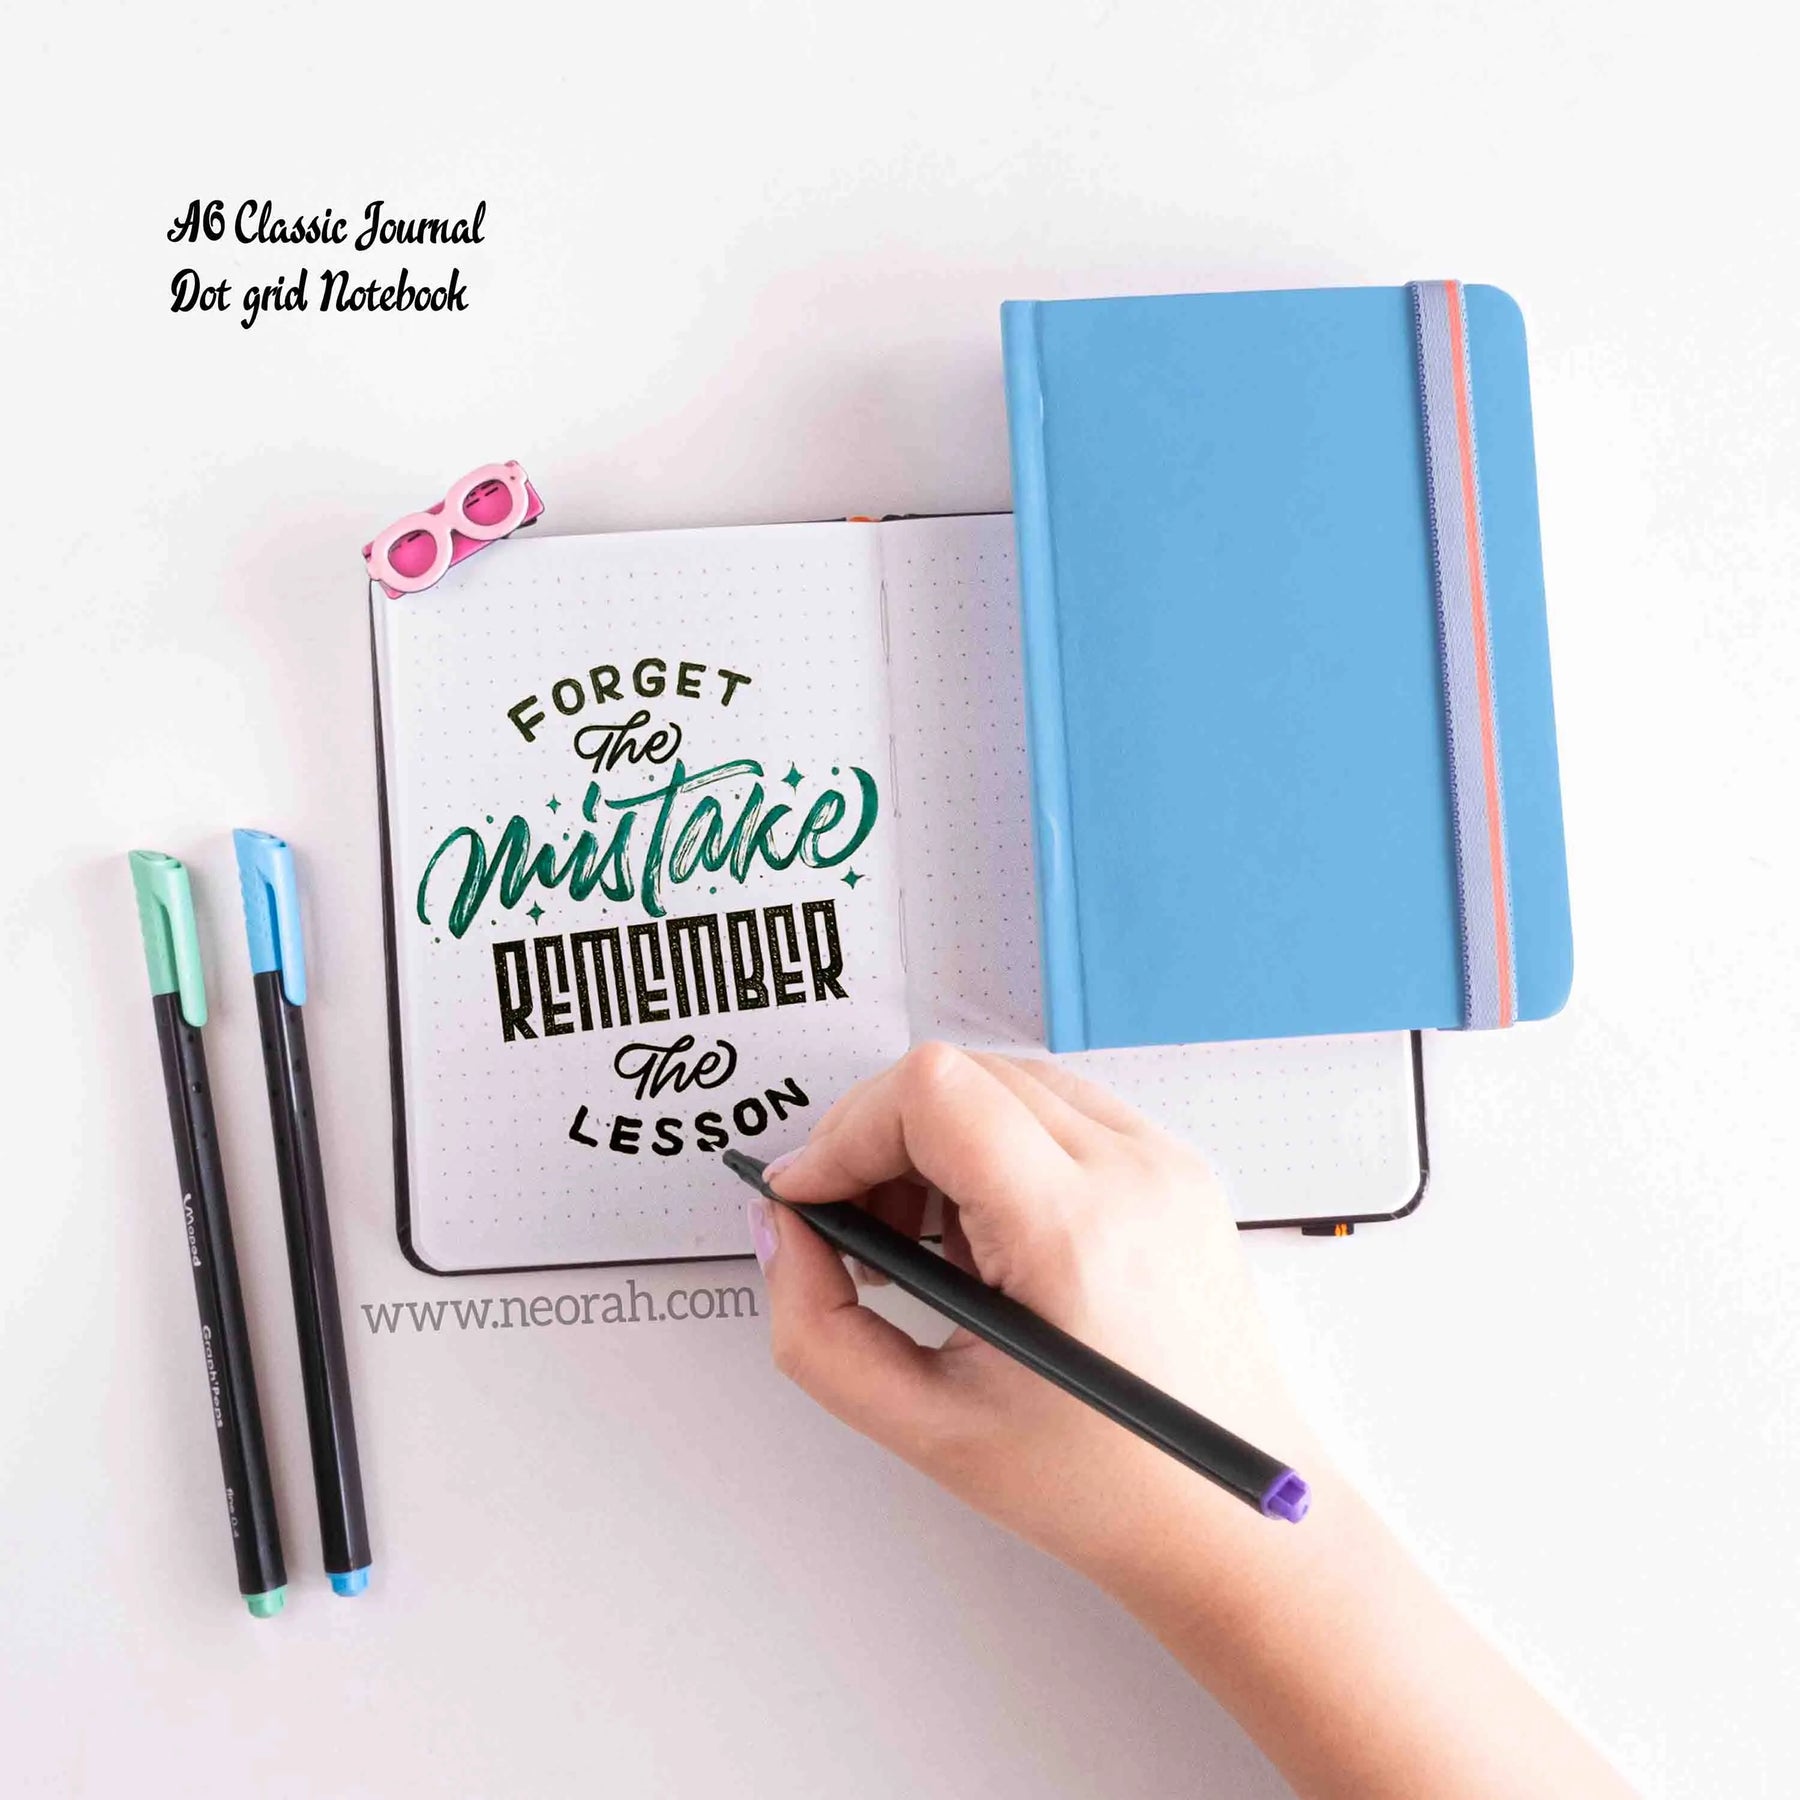 A6 Classic Journal
Dot grid Notebook
FORGET
The
mistake
REMEMBER
The
LESSON
www.neorah.com
Maped
Graph'Peps
fine 0.4